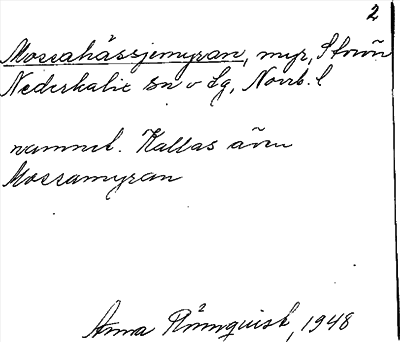 2
Mossahässjemyran, myr, Storön
Nederkalix sn o Lg, Norrb. l
namnb. Kallas även
Mossamyran
Anna Rönnquist, 1948